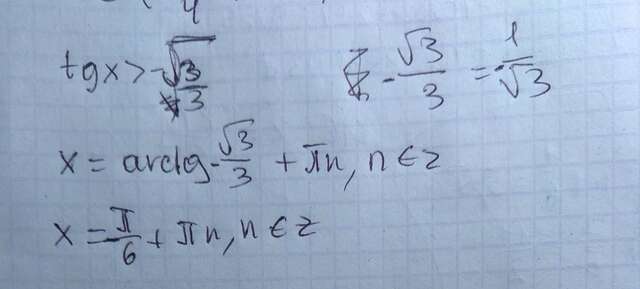 tgx > -√3/3   - √3/3 = -1/√3
x = arctg - √3/3 + πn, n ∈ z
x = π/6 + πn, n ∈ z